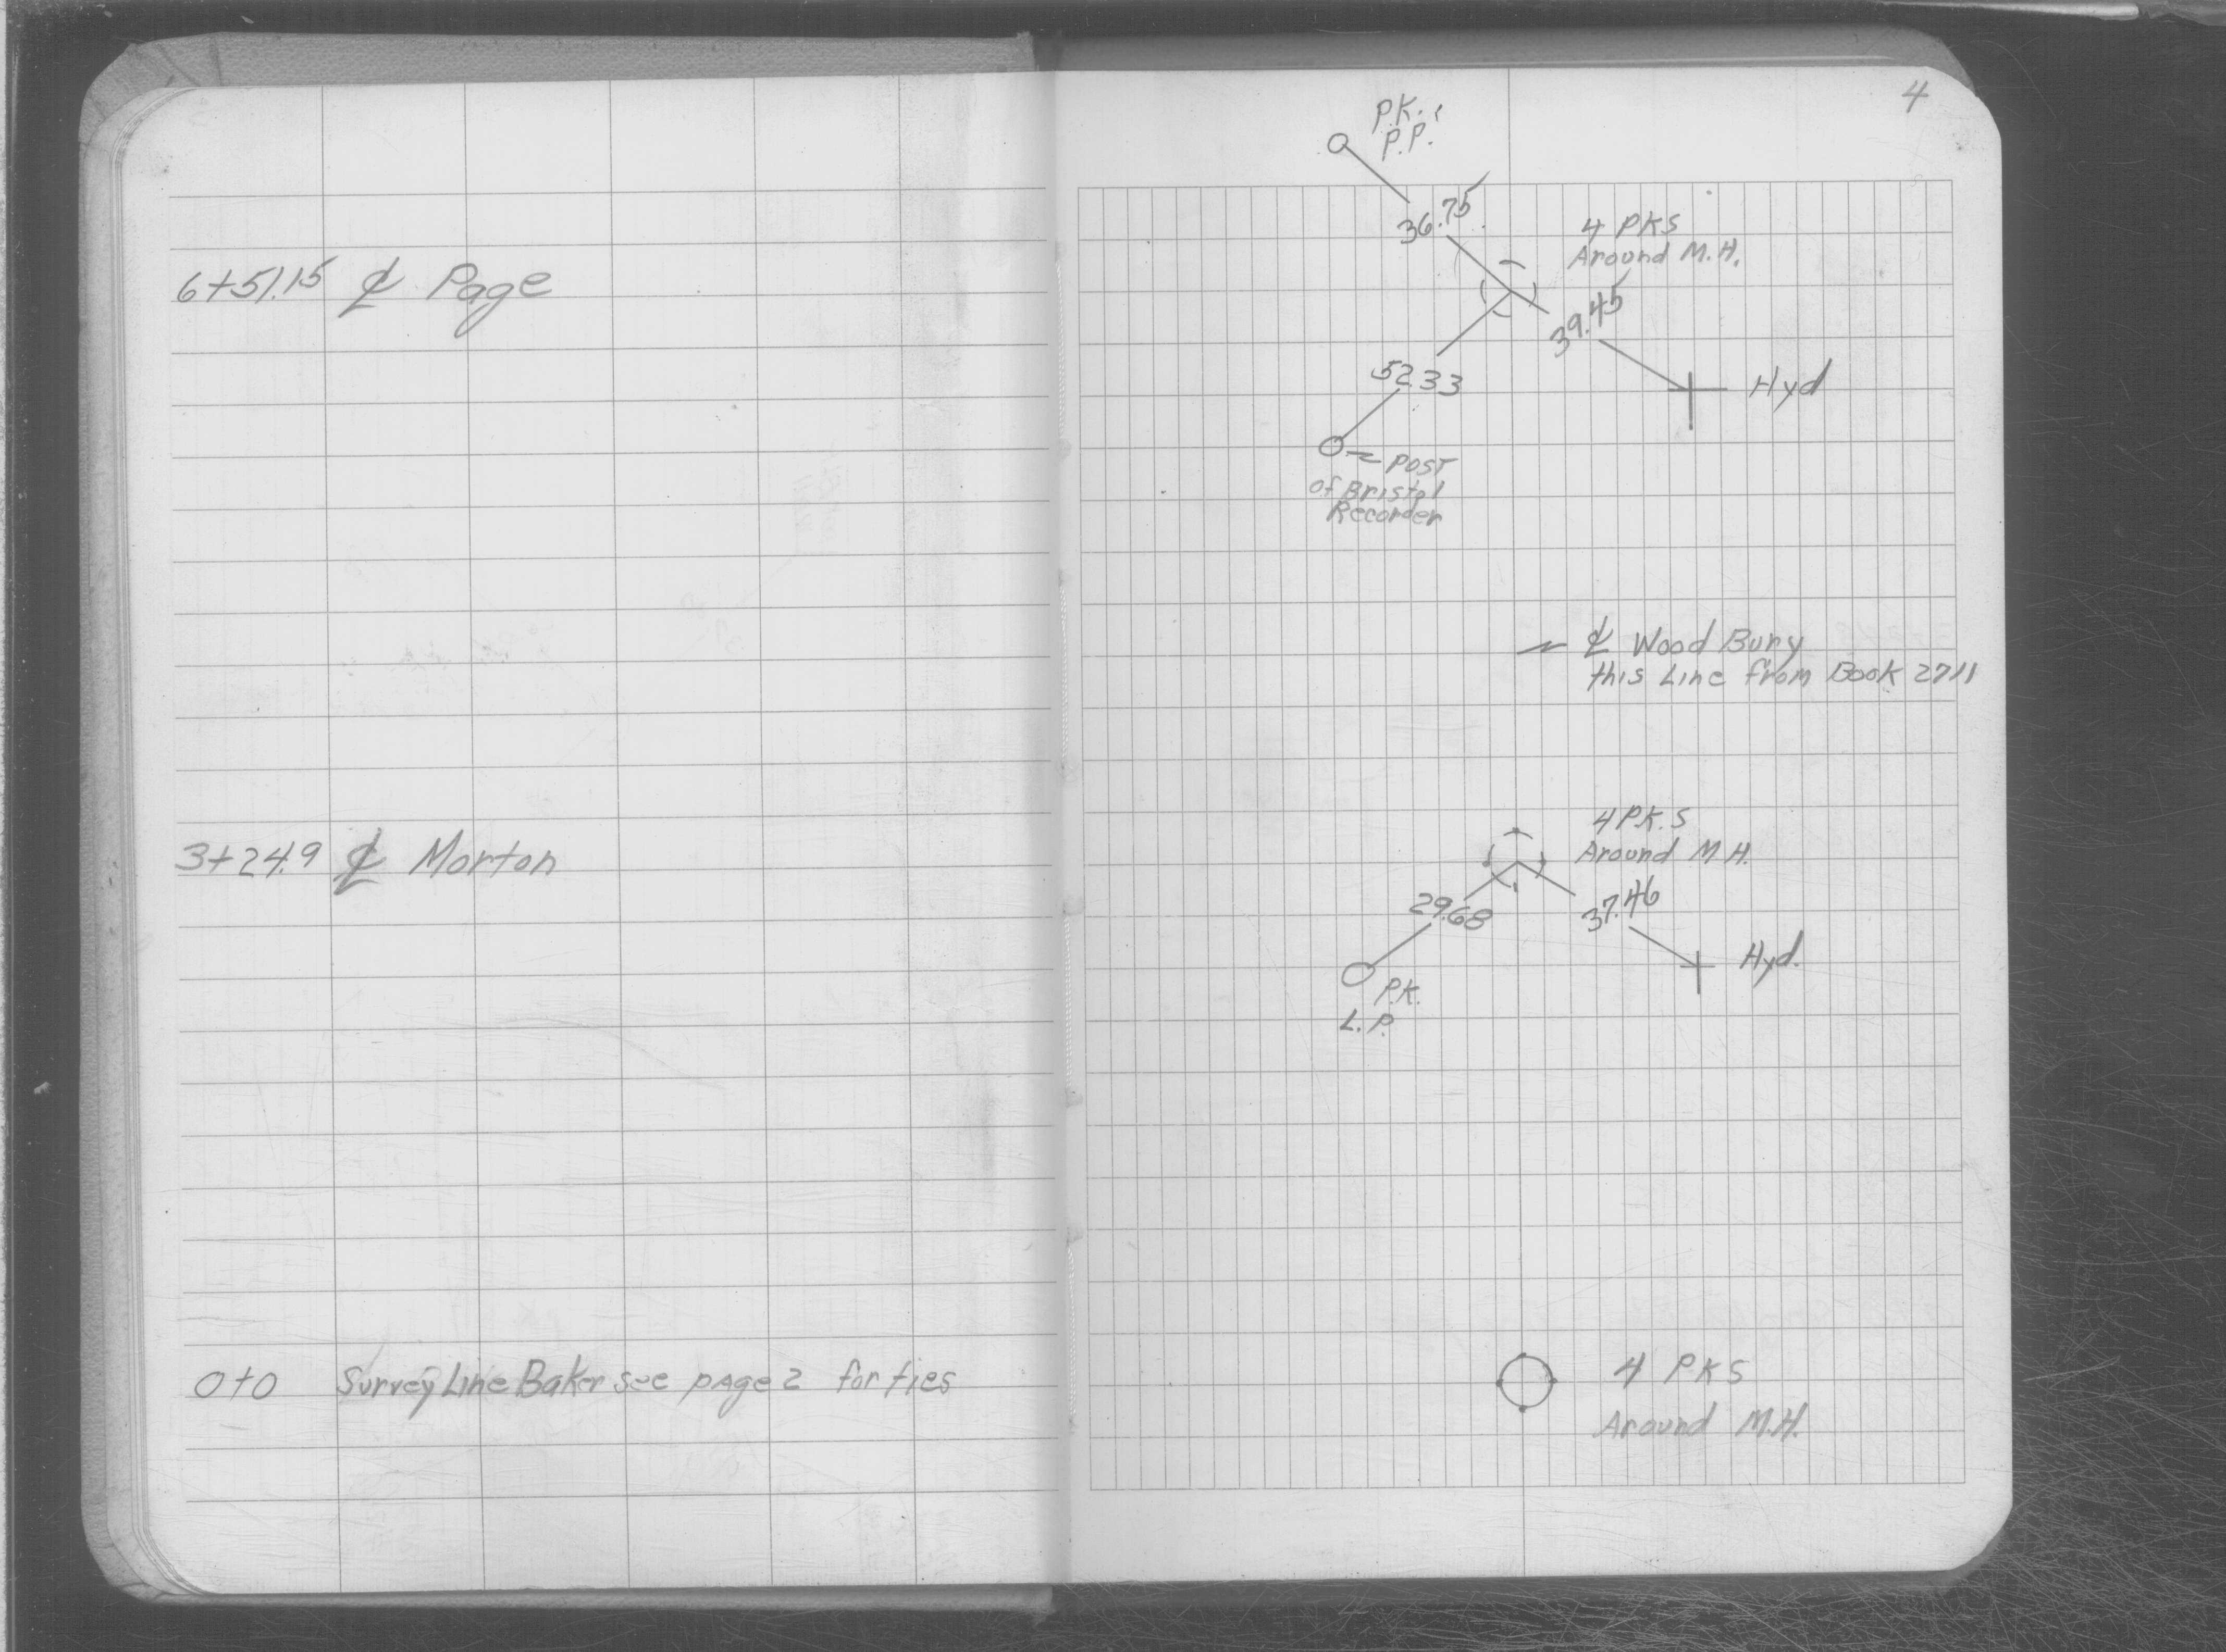 6+51.15 ℄ Page
3+24.9 ℄ Morton
0+0 Survey Line Baker see page 2 for ties
4
P.K.
P.P.
36.75
4 PKS
Around M.H.
39.45
52.33
Hyd
Post
of Bristol
Recorder
℄ Wood Bury
this Line from Book 2711
4 P.K.S
Around M.H.
29.68
37.46
Hyd.
P.K.
L.P.
4 PKS
Around M.H.